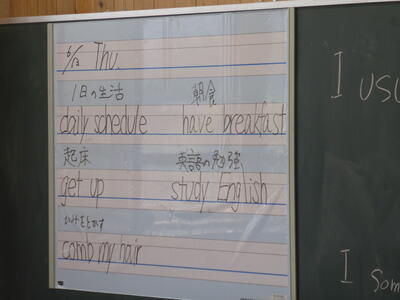 6/12 Thu
1日の生活 朝食
daily schedule have breakfast
起床 英語の勉強
get up study English
かみをとかす
comb my hair
I usu
I Som